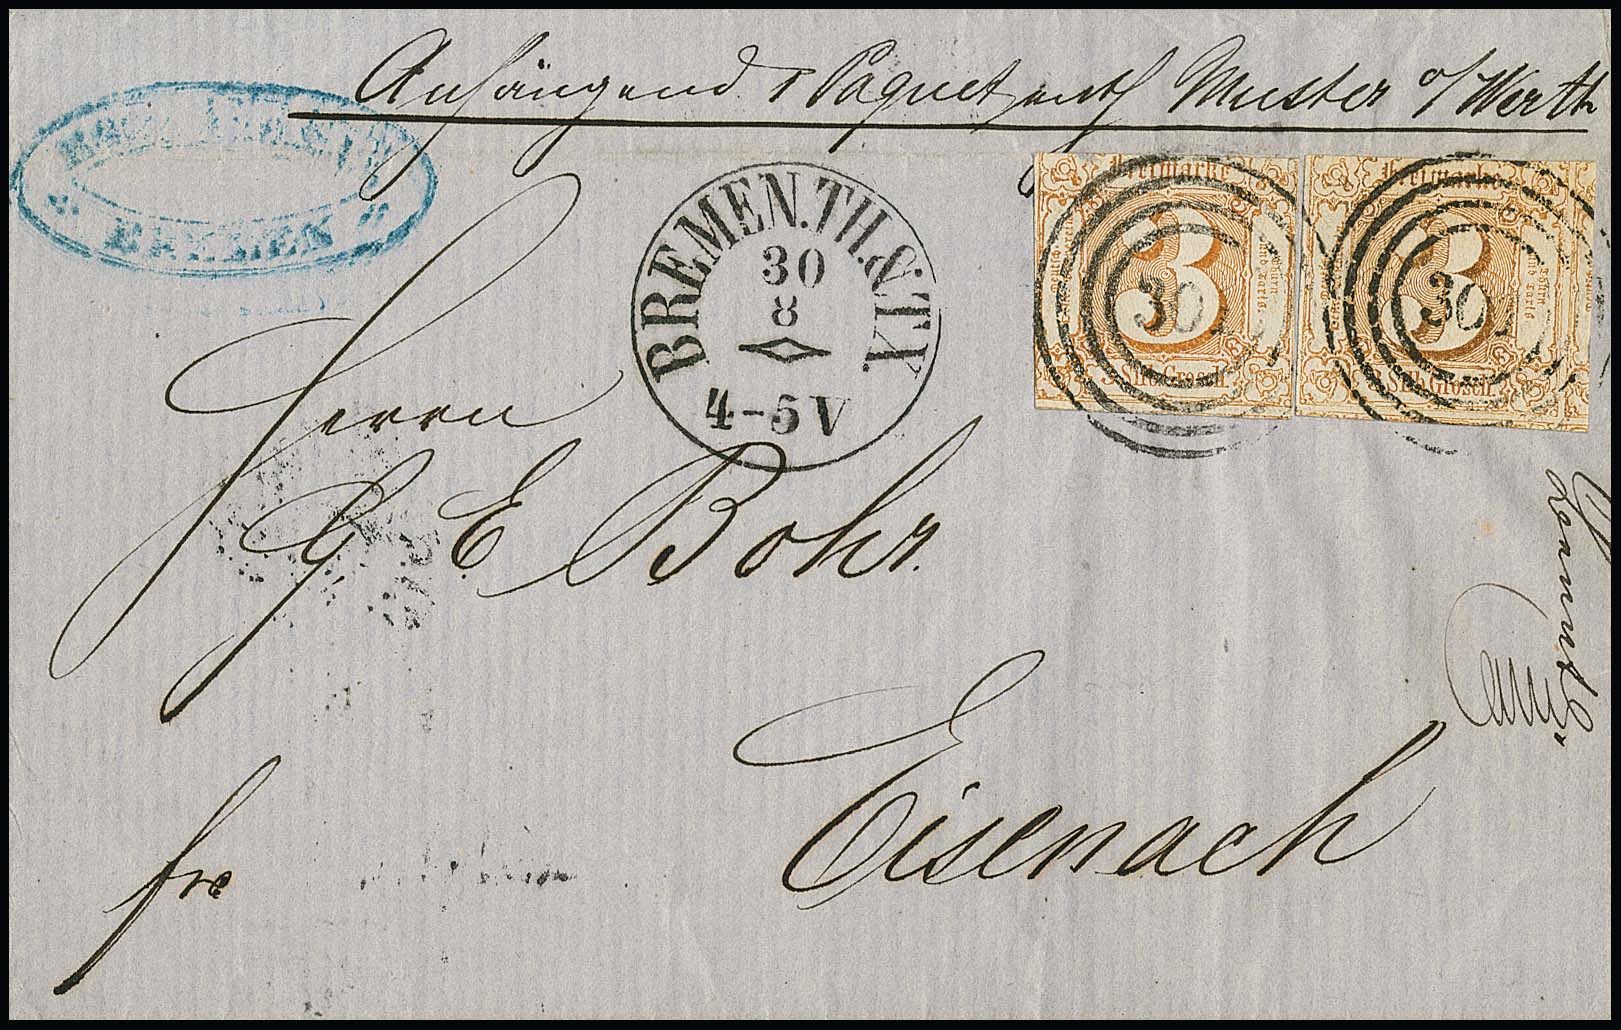 Anhängend 1 Paquet enth Muster o/Werth
BREMEN
BREMEN.TH.&TX.
30
8
4-5 V
Freimarke
3
30
3 Silb.Grosch.
Freimarke
3
30
3 Silb.Grosch.
Herrn
G. E. Bohr.
Eisenach
fro